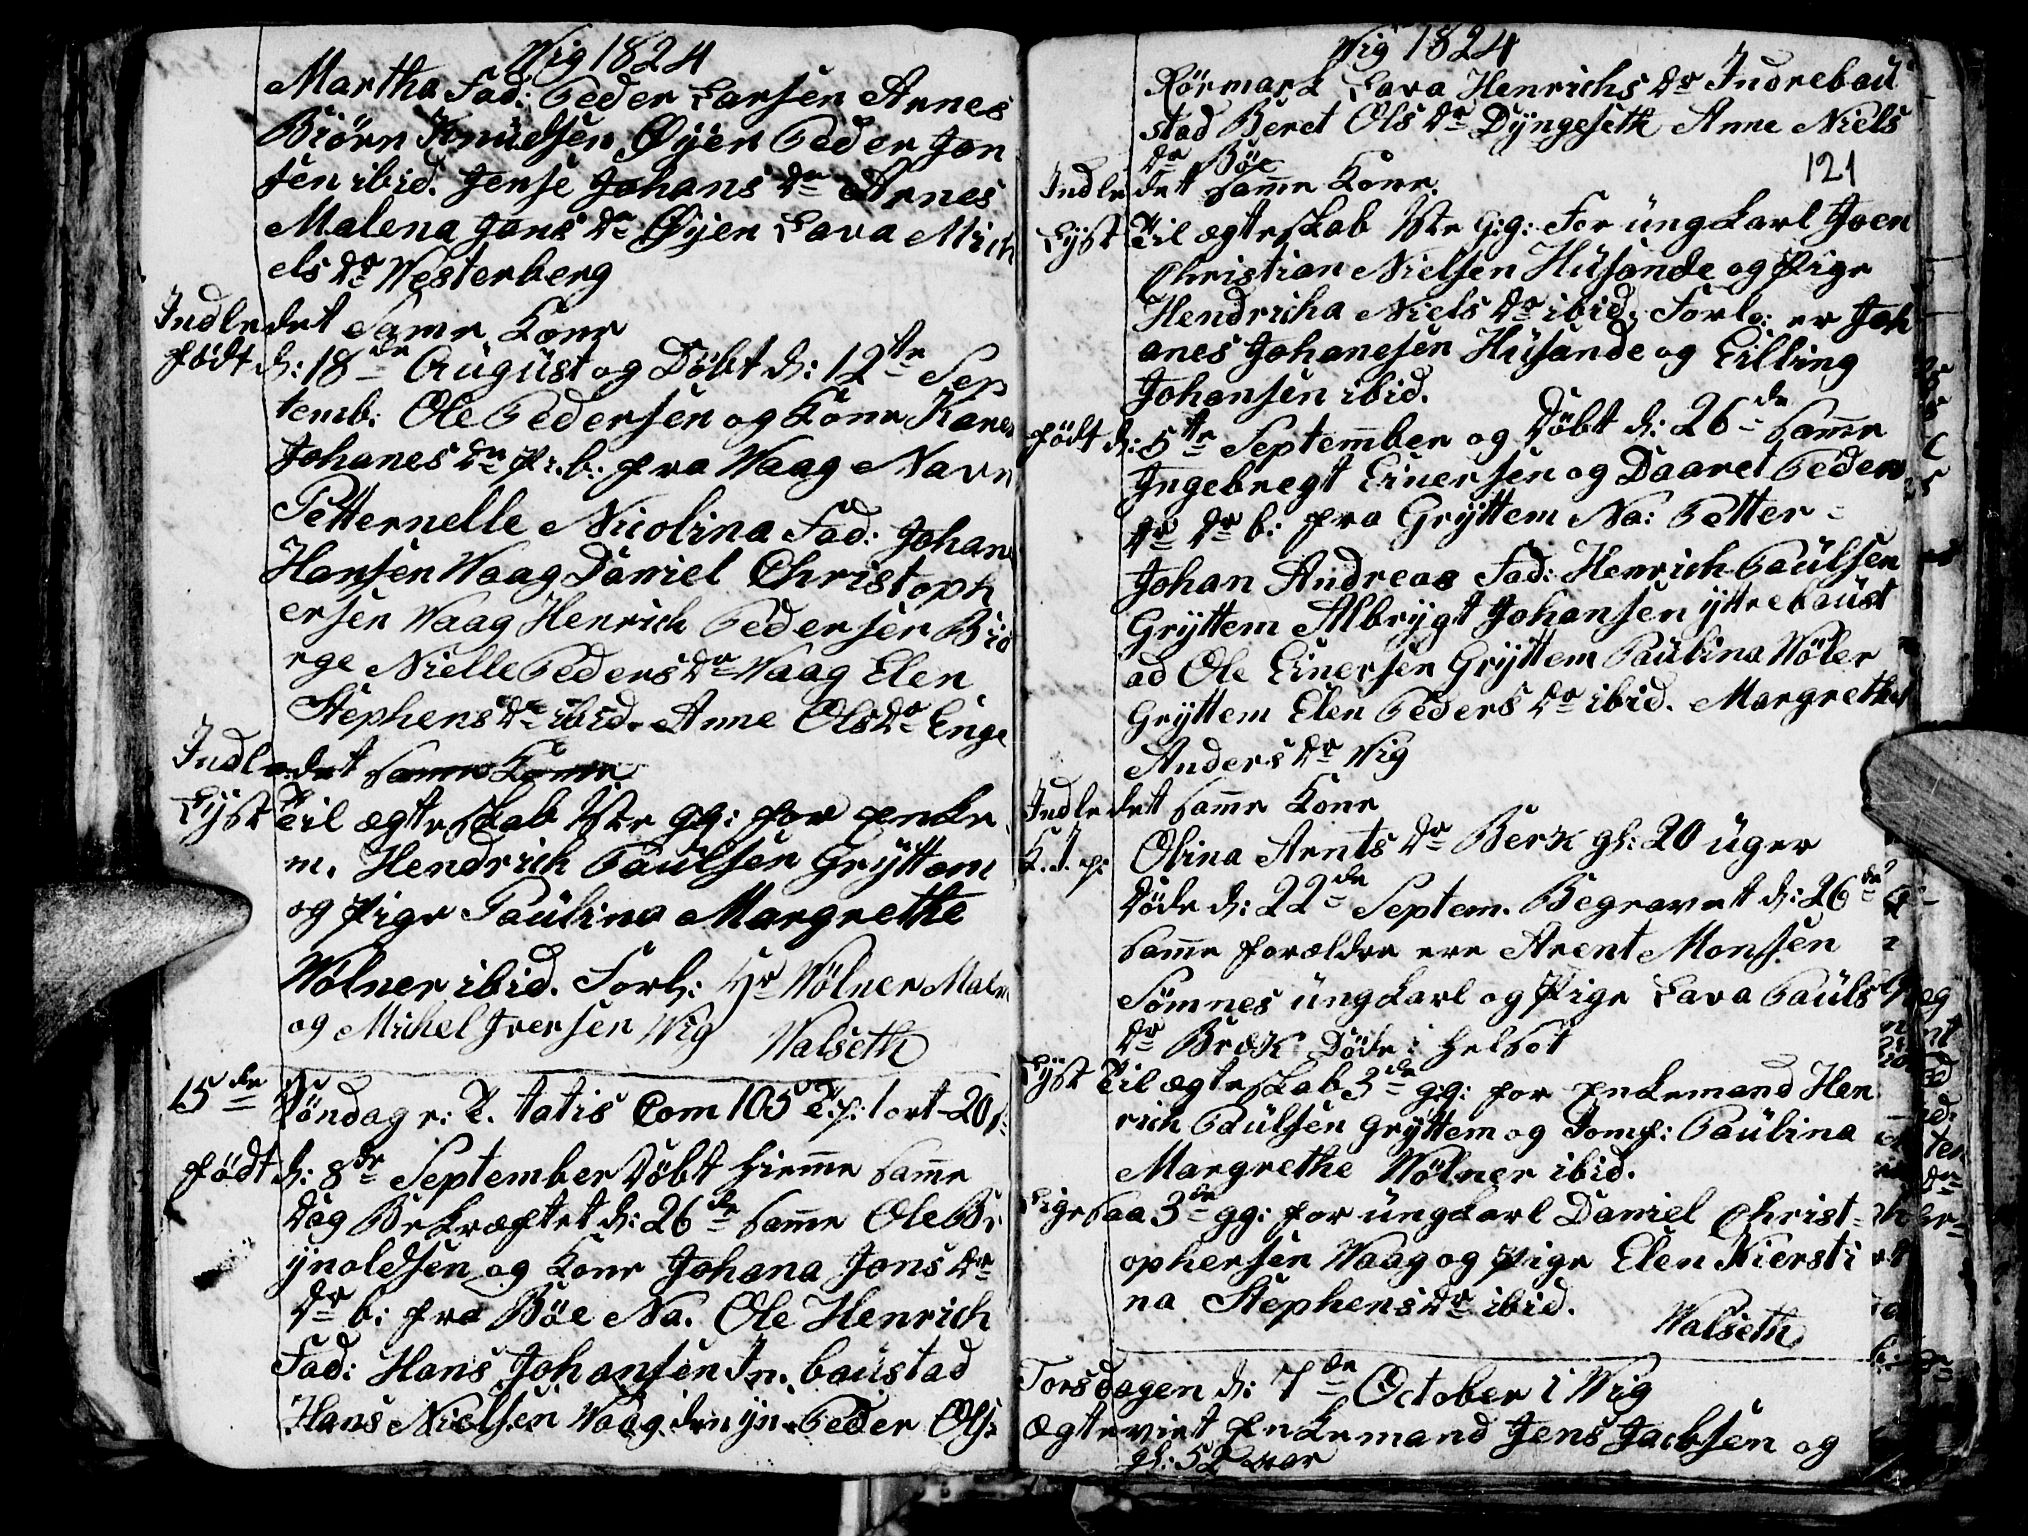 Wig 1824
Martha Fad: Peder Larsen Arnes
Biörn Knudsen Öÿen Peder Jon
sen ibid. Jense Johans Dr Arnes
Malena Jons Dr Öÿen Lava Mich
els Dr Westerberg
Indledet Same Kone
født d: 18de August og Döbt d: 12te Sep
temb: Ole Pedersen og Kone Karen
Johanes Dr P: b: fra Waag Navn
Petternelle Nicolina Fad: Johan
Hansen Waag Daniel Christoph
ersen Waag Henrich Pedersen Biö
rge Nielle Peders Dr Waag Elen
Stephens Dr ibid. Anne Ols Dr Enge
Indledet Same Kone
Lÿst Til ægteskab 1ste gg: for Enke
m. Hendrich Paülsen Grÿttem
og Pige Paülina Margrethe
Wölner ibid. Forl: Hr Wölner
og Michel Iversen Wig Walseth
15de Söndag e: T. tatis Com 105 T. p: 1 ort 20 s
født d: 8de September Döbt hieme Same
Dag Bekræftet d: 26de Same Ole Br
ÿnoldsen og Kone Johana Jons Dr
Dr b: fra Böe Na. Ole Henrich
Fad: Hans Johansen In. baüstad
Hans Nielsen Waag den ÿn. Peder Ols:
Wig 1824
Rörmark Lava Henrichs Dr Indrebaü
stad Beret Ols Dr Dÿngeseth Anne Niels
Dr Böe
121
Indledet Same Kone.
Lÿst Til ægteskab 1ste gg: For üngkarl Joen
Christian Nielsen Hüsande og Pige
Hendricha Niels Dr ibid. Forlo: er Joh
anes Johanesen Hüsande og Eilling
Johansen ibid.
født d: 5te September og Döbt d: 26de Same
Ingebregt Einersen og Daaret Peders
Dr Dr b: fra Grÿttem Na: Petter
Johan Andreas Fad: Henrich Paülsen
Grÿttem Albrÿgt Johansen ÿttrebaüst
ad Ole Einersen Grÿttem Paülina Wöler
Grÿttem Elen Peders Dr ibid. Margrethe
Anders Dr Wig
Indledet Same Kone
K. J. p: Olina Arnts Dr Berk gl: 20 üger
Döde d: 22de Septem. Begravet d: 26de
Same forældre ere Arent Monsen
Sömnes üngkarl og Pige Lava Paüls
Dr Bræk Döde i helsot
Lÿst Til ægteskab 3de gg: for Enkemand Hen
rich Paülsen Grÿttem og Jomf: Paülina
Margrethe Wölner ibid.
Ligesaa 3de gg: for üngkarl Daniel Christ-
ophersen Waag og Pige Elen Kiersti
na Stephens Dr ibid.
Walseth
Torsdagen d: 7de October i Wig
Ægteviet Enkemand Jens Jacbsen og
gl: 52 aar